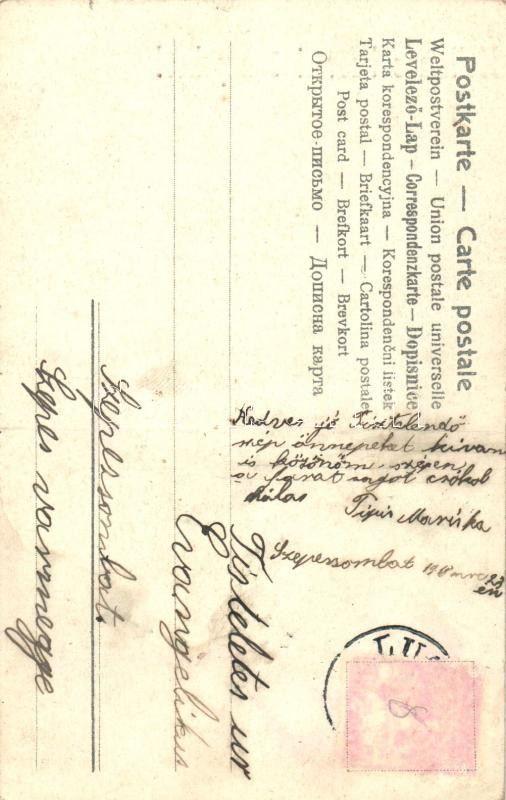 Postkarte — Carte postale
Weltpostverein — Union postale universelle
Levelező-Lap – Correspondenzkarte – Dopisnice
Karta korespondencyjna — Korespondenční listek
Tarjeta postal — Briefkaart — Cartolina postale
Post card — Brefkort — Brevkort
Открытое-письмо — Дописна карта
Kedves jó Tisztelendő
nép ünnepeket kiván
is köszönöm szépen
a csókol
hálás
Mariska
Szepessombat 190 23
én
8
Tisteletes ur
Evangelikus
Szepessombat.
Szepes varmegye